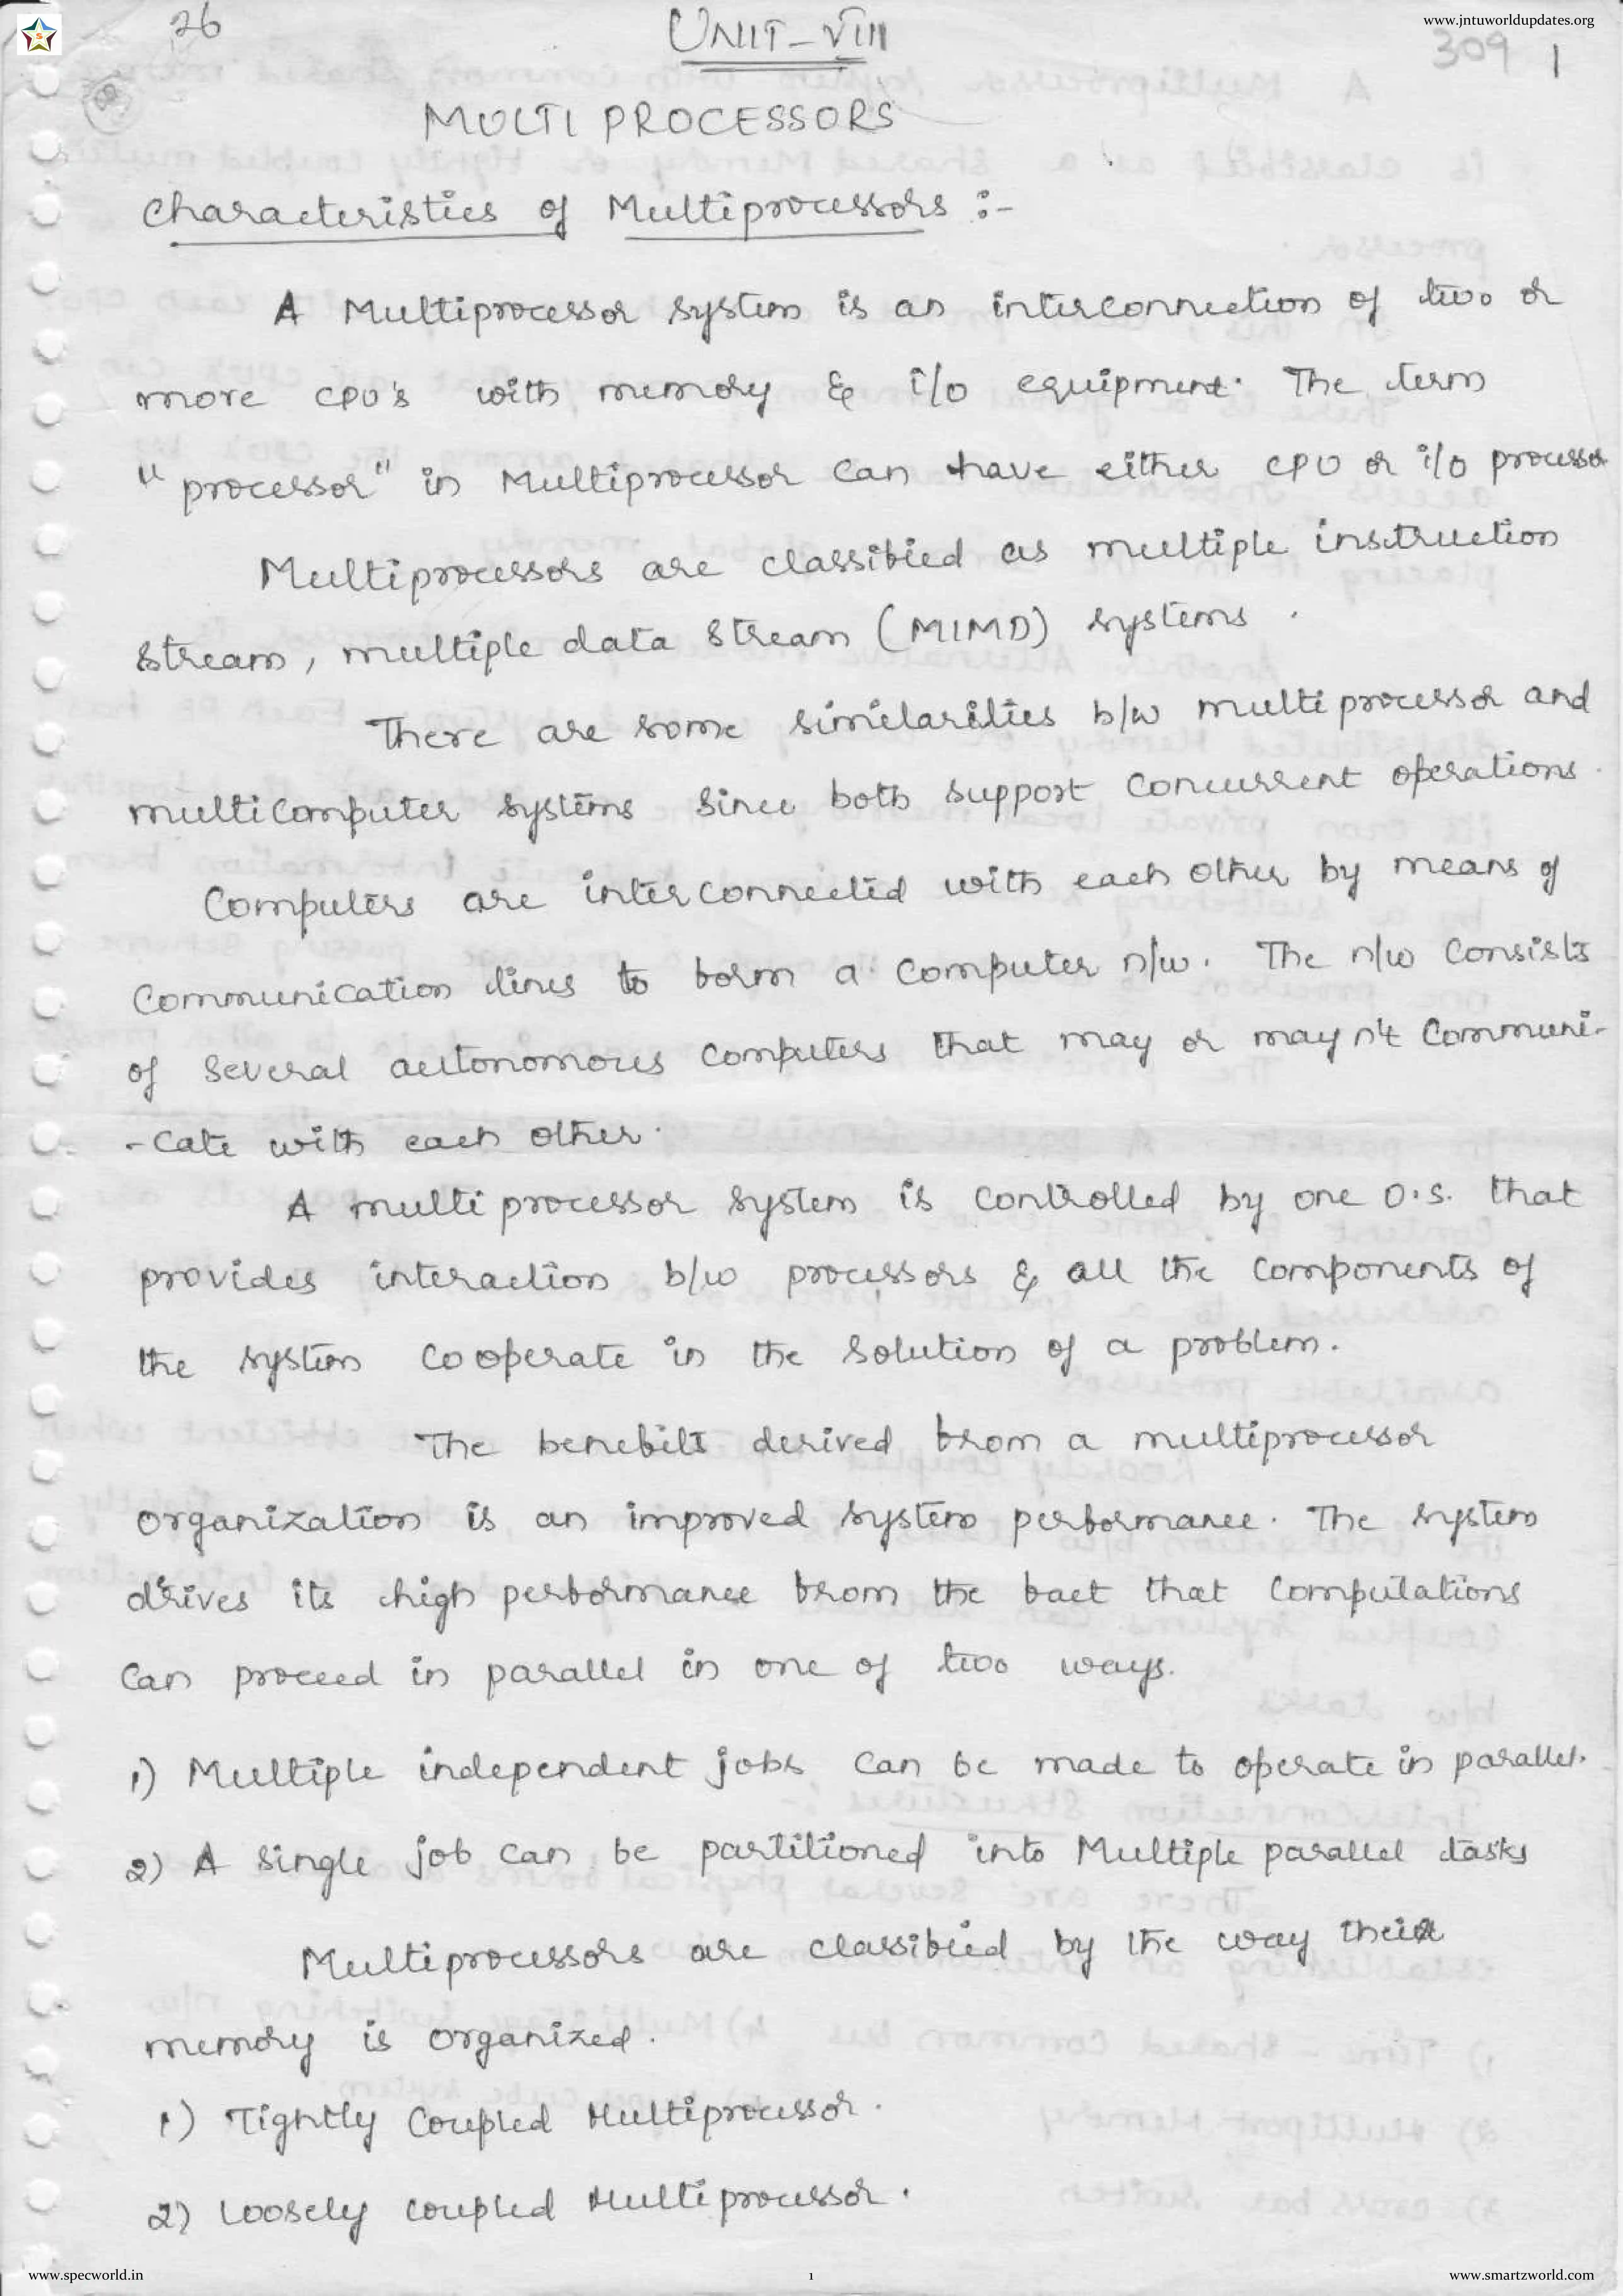 www.jntuworldupdates.org
26
UNIT-VIII
309 1
MULTI PROCESSORS
Characteristics of Multiprocessors :-
A Multiprocessor system is an interconnection of two or
more CPU's with memory & i/o equipment. The term
"processor" in Multiprocessor can have either CPU or i/o processor
Multiprocessors are classified as multiple instruction
stream, multiple data stream (MIMD) systems.
There are some similarilities b/w multiprocessor and
multicomputer systems since both support concurrent operations.
Computers are interconnected with each other by means of
communication lines to form a computer n/w. The n/w consists
of several autonomous computers that may or may n't communi-
-cate with each other.
A multiprocessor system is controlled by one O.S. that
provides interaction b/w processors & all the components of
the system cooperate in the solution of a problem.
The benefits derived from a multiprocessor
organization is an improved system performance. The system
drives its high performance from the fact that computations
can proceed in parallel in one of two ways.
1) Multiple independent jobs can be made to operate in parallel.
2) A single job can be partitioned into Multiple parallel tasks
Multiprocessors are classified by the way their
memory is organized.
1) Tightly Coupled Multiprocessor.
2) Loosely coupled Multiprocessor.
www.specworld.in
1
www.smartzworld.com